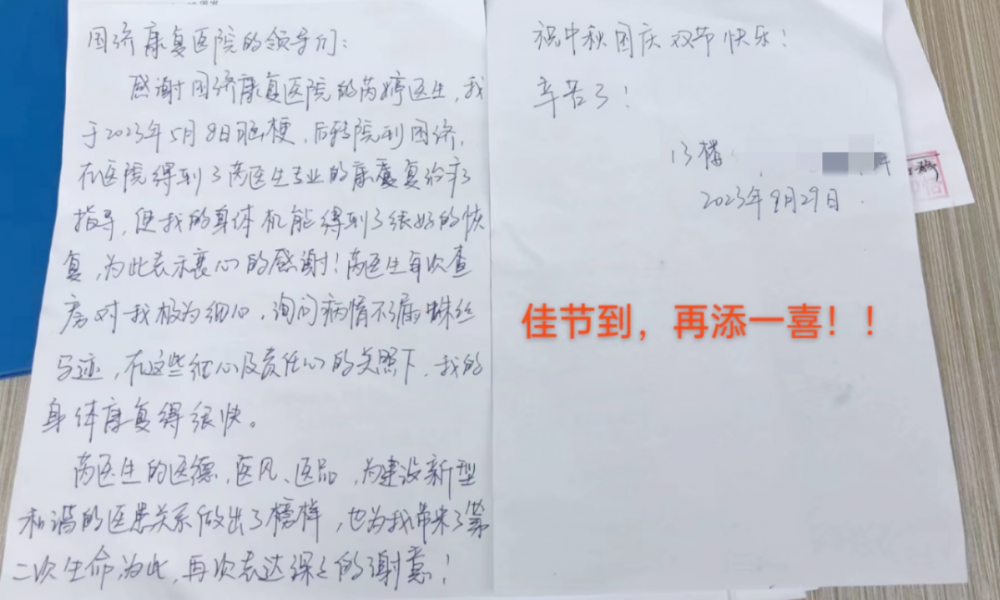 国济康复医院的领导们:
感谢国济康复医院的芮婷医生,我
于2023年5月8日脑梗,后转院到国济,
在医院得到了芮医生专业的康复治疗
指导,使我的身体机能得到了很好的恢
复,为此表示衷心的感谢!芮医生每次查
房对我极为细心,询问病情不漏蛛丝
马迹,在这些细心及责任心的关照下,我的
身体康复得很快。
芮医生的医德、医风、医品,为建设新型
和谐的医患关系做出了榜样,也为我带来了第
二次生命,为此,再次表达深深的谢意!
祝中秋国庆双节快乐!
辛苦了!
13楼
2023年9月29日
佳节到,再添一喜!!